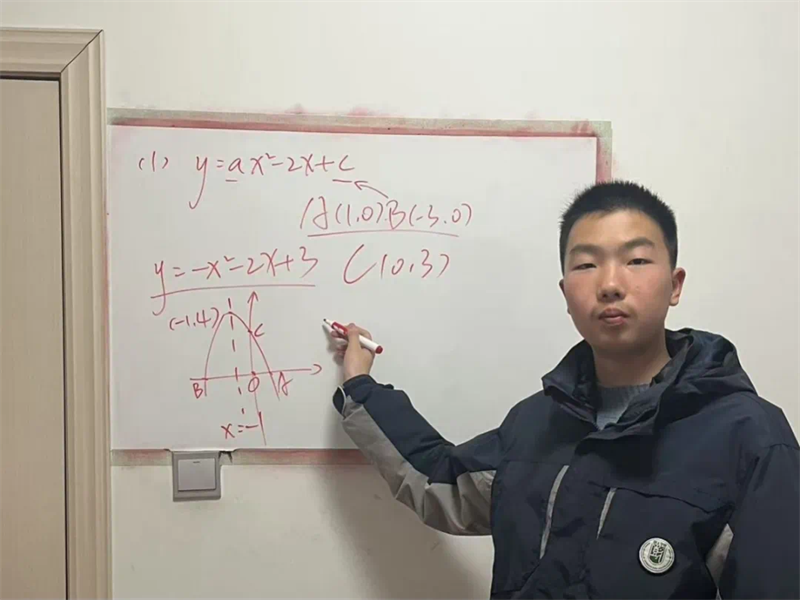 (1) y=ax²-2x+c
A(1,0).B(-3,0)
y=-x²-2x+3 C(0,3)
(-1,4) C
B O A
x=-1